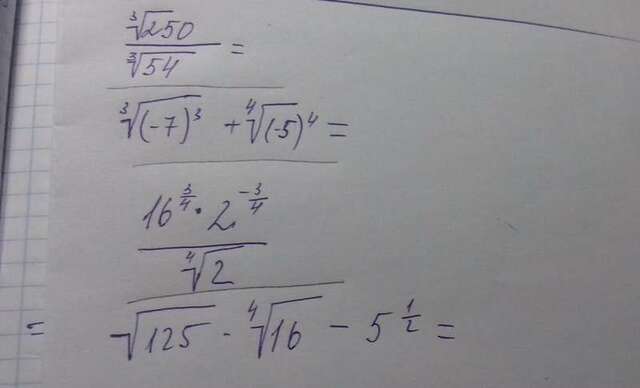 ∛250
∛54 =
∛(-7)³ + ∜(-5)⁴ =
16^(3/4) · 2^(-3/4)
∜2
= √125 · ∜16 - 5^(1/2) =